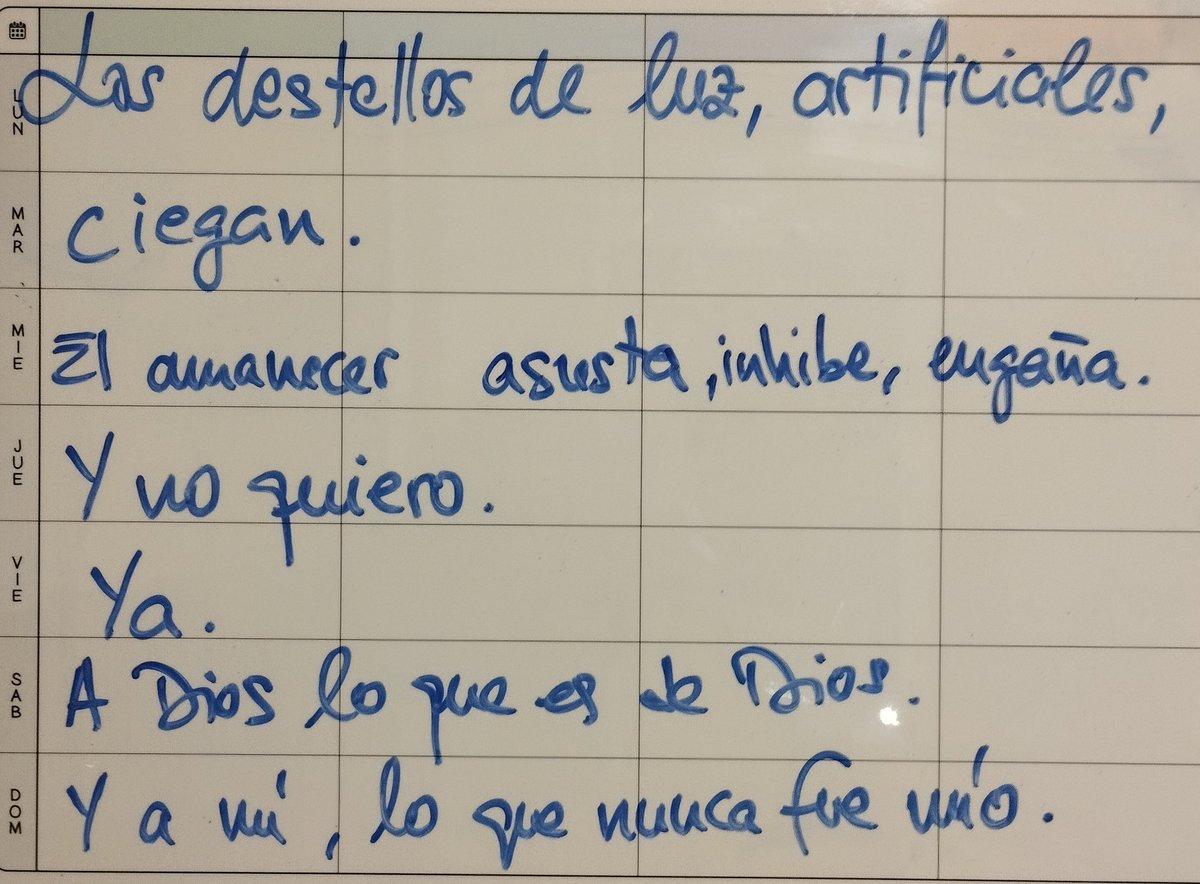 LUN
Los destellos de luz, artificiales,
MAR
ciegan.
MIE
El amanecer asusta, inhibe, engaña.
JUE
Y no quiero.
VIE
Ya.
SAB
A Dios lo que es de Dios.
DOM
Y a mí, lo que nunca fue mío.